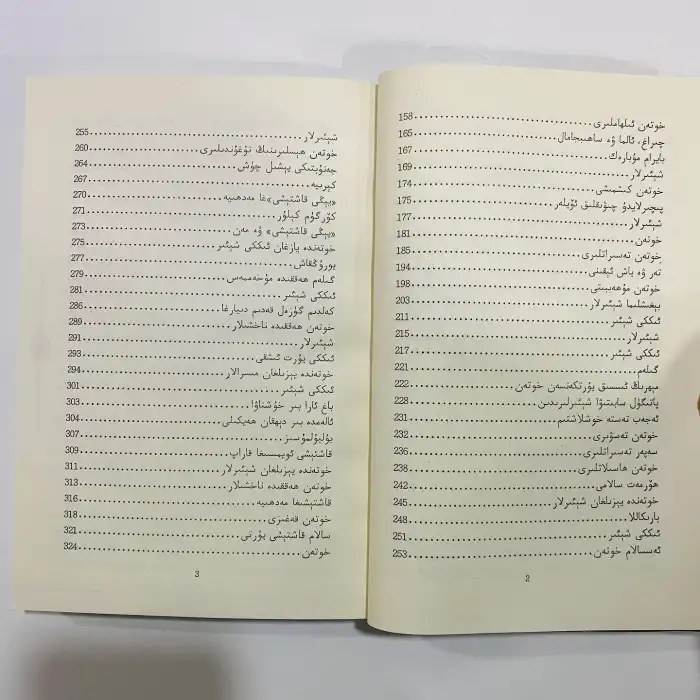 خوتەن ئىلھاملىرى 158
چىراغ، ئالما ۋە ساھىبجامال 165
بايرام مۇبارەك 167
شېئىرلار 169
خوتەن كىشمىشى 174
پىچىرلايدۇ چىۋىقلىق ئۆيلەر 175
شېئىرلار 177
خوتەن 181
خوتەن تەسىراتلىرى 185
تەر ۋە ياش ئېقىنى 194
خوتەن مۇھەببىتى 198
بېغىشلىما شېئىرلار 203
ئىككى شېئىر 211
شېئىرلار 215
ئىككى شېئىر 217
گىلەم 221
مېھرىڭ ئىسسىق يۇرتكەنسەن خوتەن 222
پاتىگۈل سابىتوۋا شېئىرلىرىدىن 228
ئەجەب تەستە خوشلاشتىم 231
خوتەن تەسۋىرى 232
سەپەر تەسىراتلىرى 236
خوتەن ھاسىلاتلىرى 238
ھۆرمەت سالامى 242
خوتەندە يېزىلغان شېئىرلار 245
بارىكاللا 248
ئىككى شېئىر 251
ئەسسالام خوتەن 253
2
شېئىرلار 255
خوتەن ھېسلىرىنىڭ تۇغۇندىلىرى 260
جەنۇبتىكى يېشىل چۈش 264
كېرىيە 267
«يېڭى قاشتېشى»غا مەدھىيە 270
كۆرگۈم كېلۇر 271
«يېڭى قاشتېشى» ۋە مەن 273
خوتەندە يازغان ئىككى شېئىر 275
يورۇڭقاش 277
گىلەم ھەققىدە مۇخەممەس 279
ئىككى شېئىر 281
كەلدىم گۈزەل قەدىم دىيارغا 286
خوتەن ھەققىدە ناخشىلار 289
شېئىرلار 291
ئىككى يۇرت ئىشقى 293
خوتەندە يېزىلغان مىسرالار 294
ئىككى شېئىر 301
باغ ئارا بىر خۇشناۋا 303
ئالەمدە بىر دېھقان ھەيكىلى 304
بۇلبۇلمۇسىز 307
قاشتېشى ئويمىسىغا قاراپ 309
خوتەندە يېزىلغان شېئىرلار 311
خوتەن ھەققىدە ناخشىلار 313
قاشتېشىغا مەدھىيە 316
خوتەن قەغىزى 318
سالام قاشتېشى يۇرتى 321
خوتەن 324
3